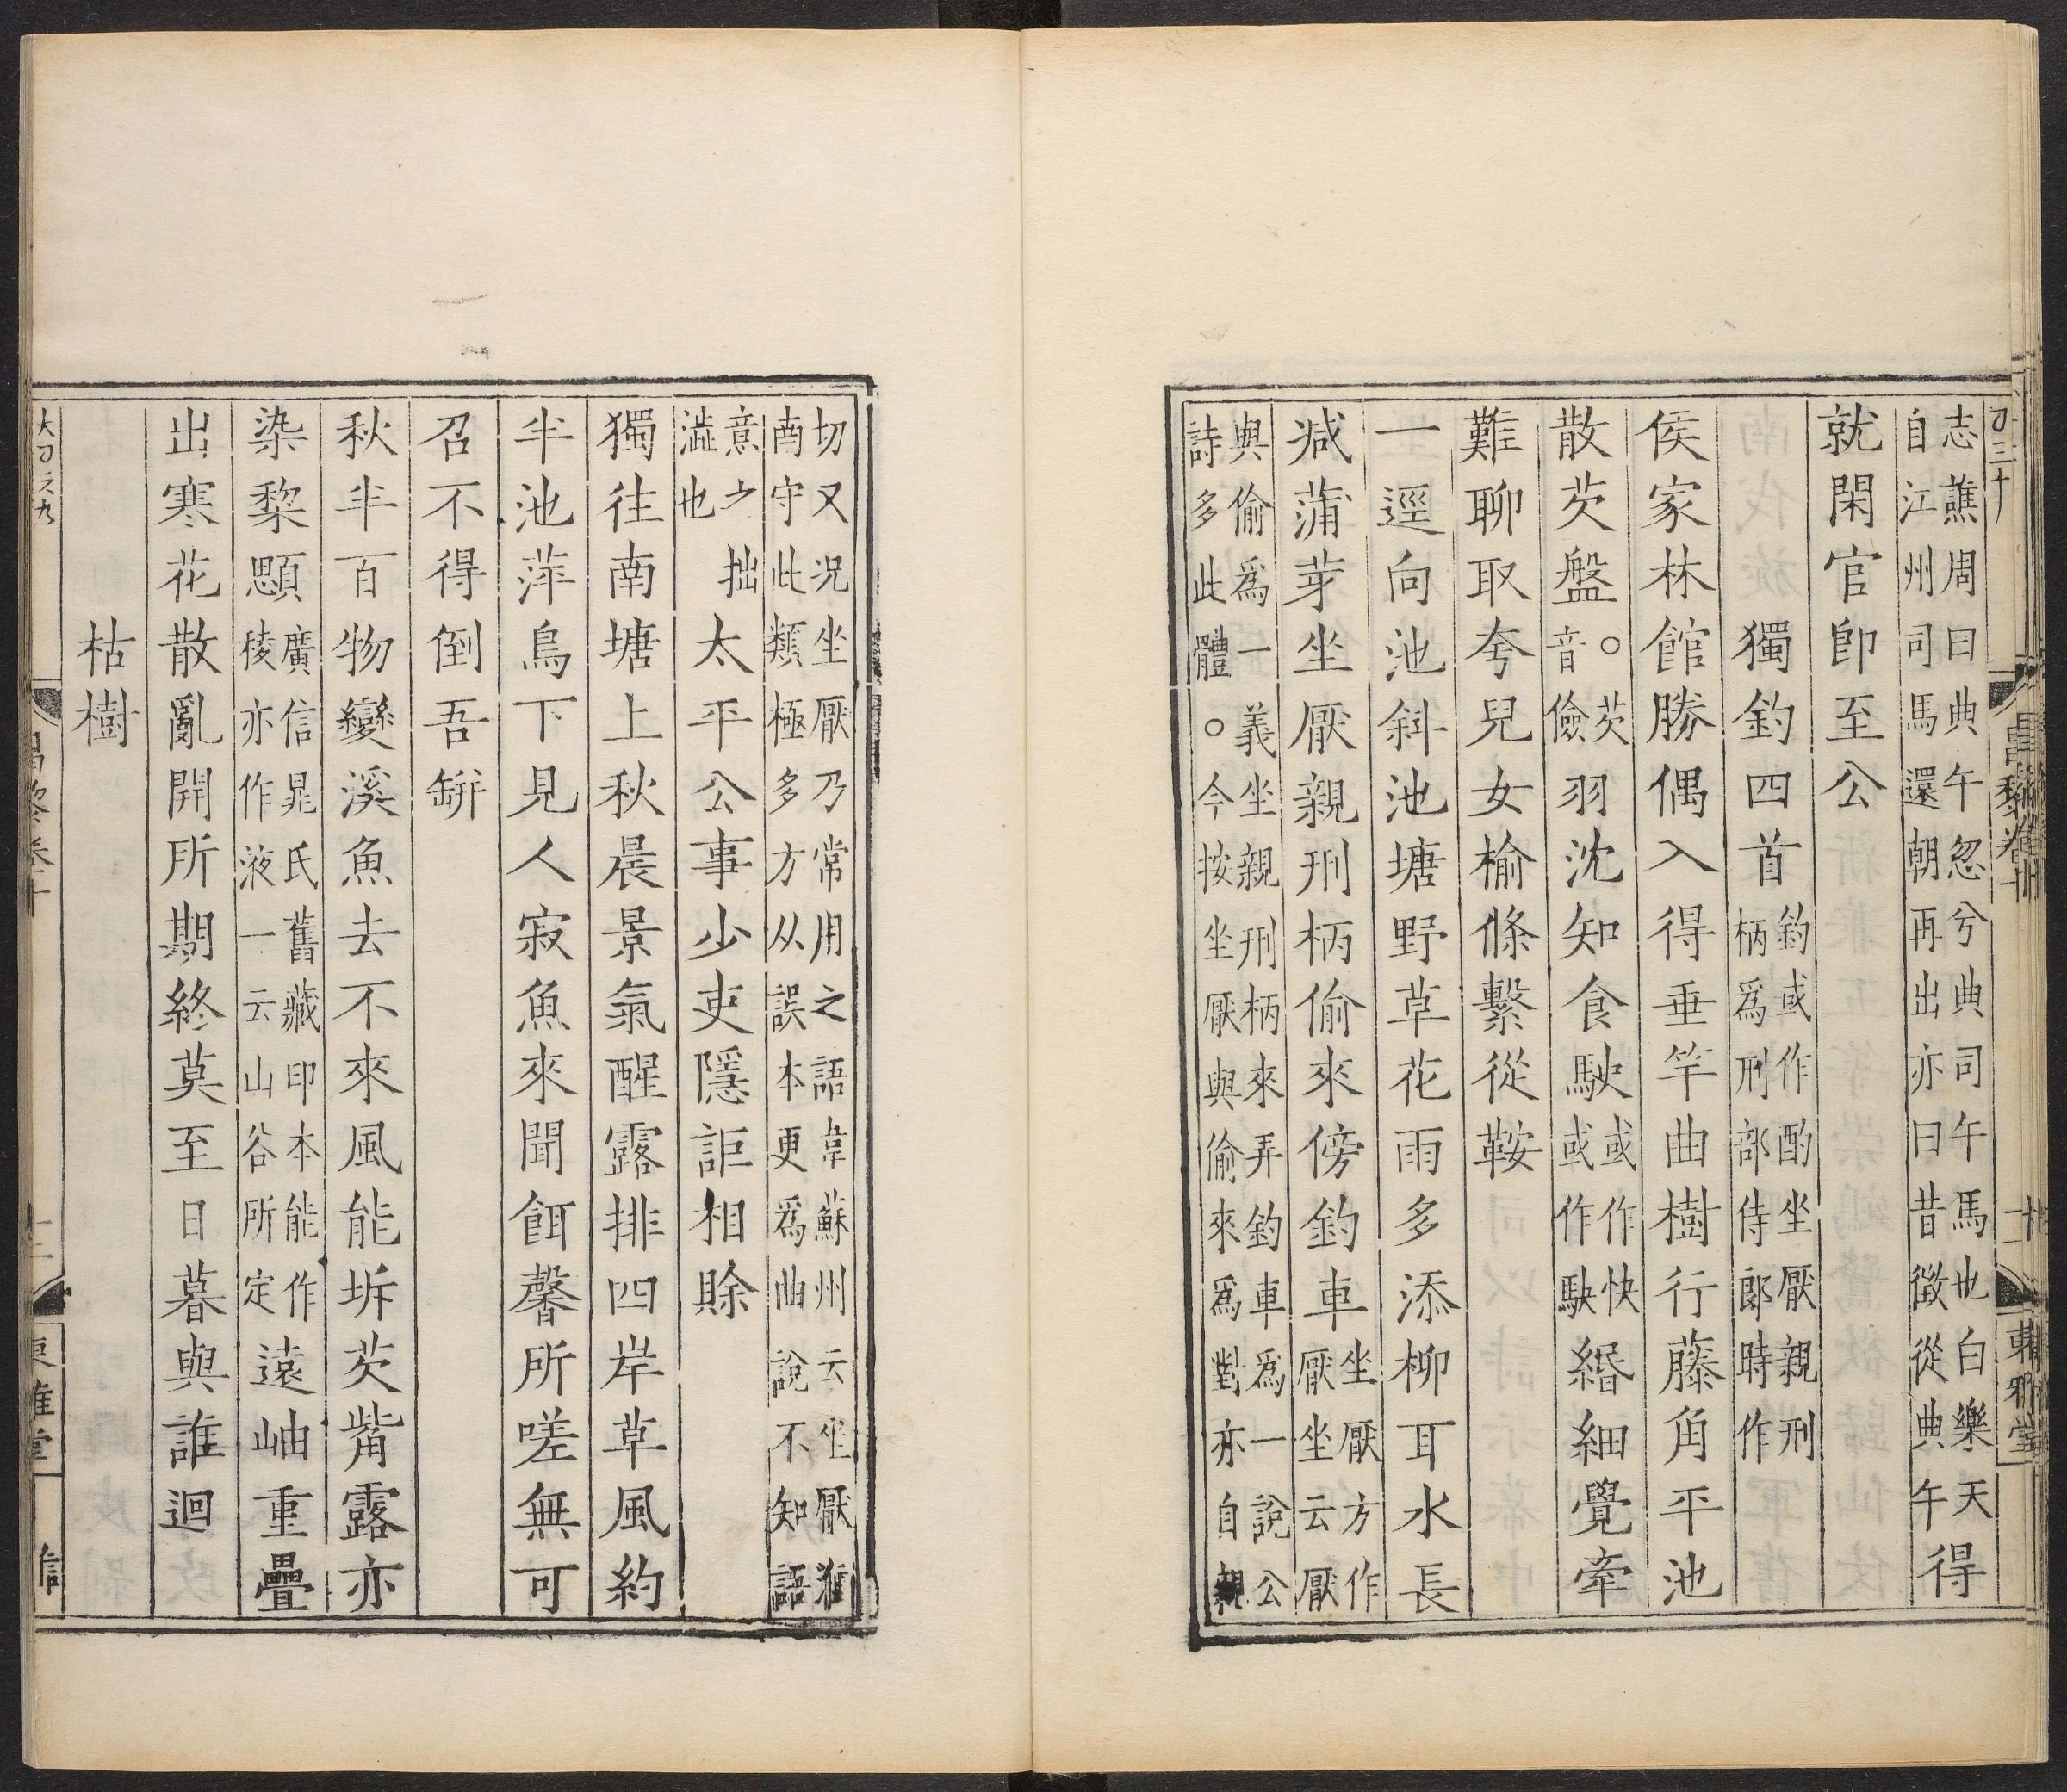 志譙周曰典午忽兮典司午馬也白樂天
自江州司馬還朝再出亦曰昔徵從典午
得
就閑官即至公
獨釣四首
釣或作酌坐厭親刑
柄爲刑部侍郎時作
侯家林館勝偶入得垂竿曲樹行藤角平池
散芡盤
○芡
音儉
羽沈知食駛
或作快
或作駃
緡細覺牽
難聊取夸兒女榆條繫從鞍
一逕向池斜池塘野草花雨多添柳耳水長
減蒲芽坐厭親刑柄偷來傍釣車
坐厭方作
厭坐云厭
與偷爲一義坐親刑柄來弄釣車爲一說公
詩多此體○今按坐厭與偷來爲對亦自親
切又况坐厭乃常用之語韋蘇州云坐厭
南守此類極多方从誤本更爲曲說不知語
意之拙
澁也
太平公事少吏隱詎相賒
獨往南塘上秋晨景氣醒露排四岸草風約
半池萍鳥下見人寂魚來聞餌馨所嗟無可
召不得倒吾缾
秋半百物變溪魚去不來風能坼芡觜露亦
染棃顋
廣信晁氏舊藏印本能作
稜亦作液一云山谷所定
遠岫重疊
出寒花散亂開所期終莫至日暮與誰迴
枯樹
東雅堂